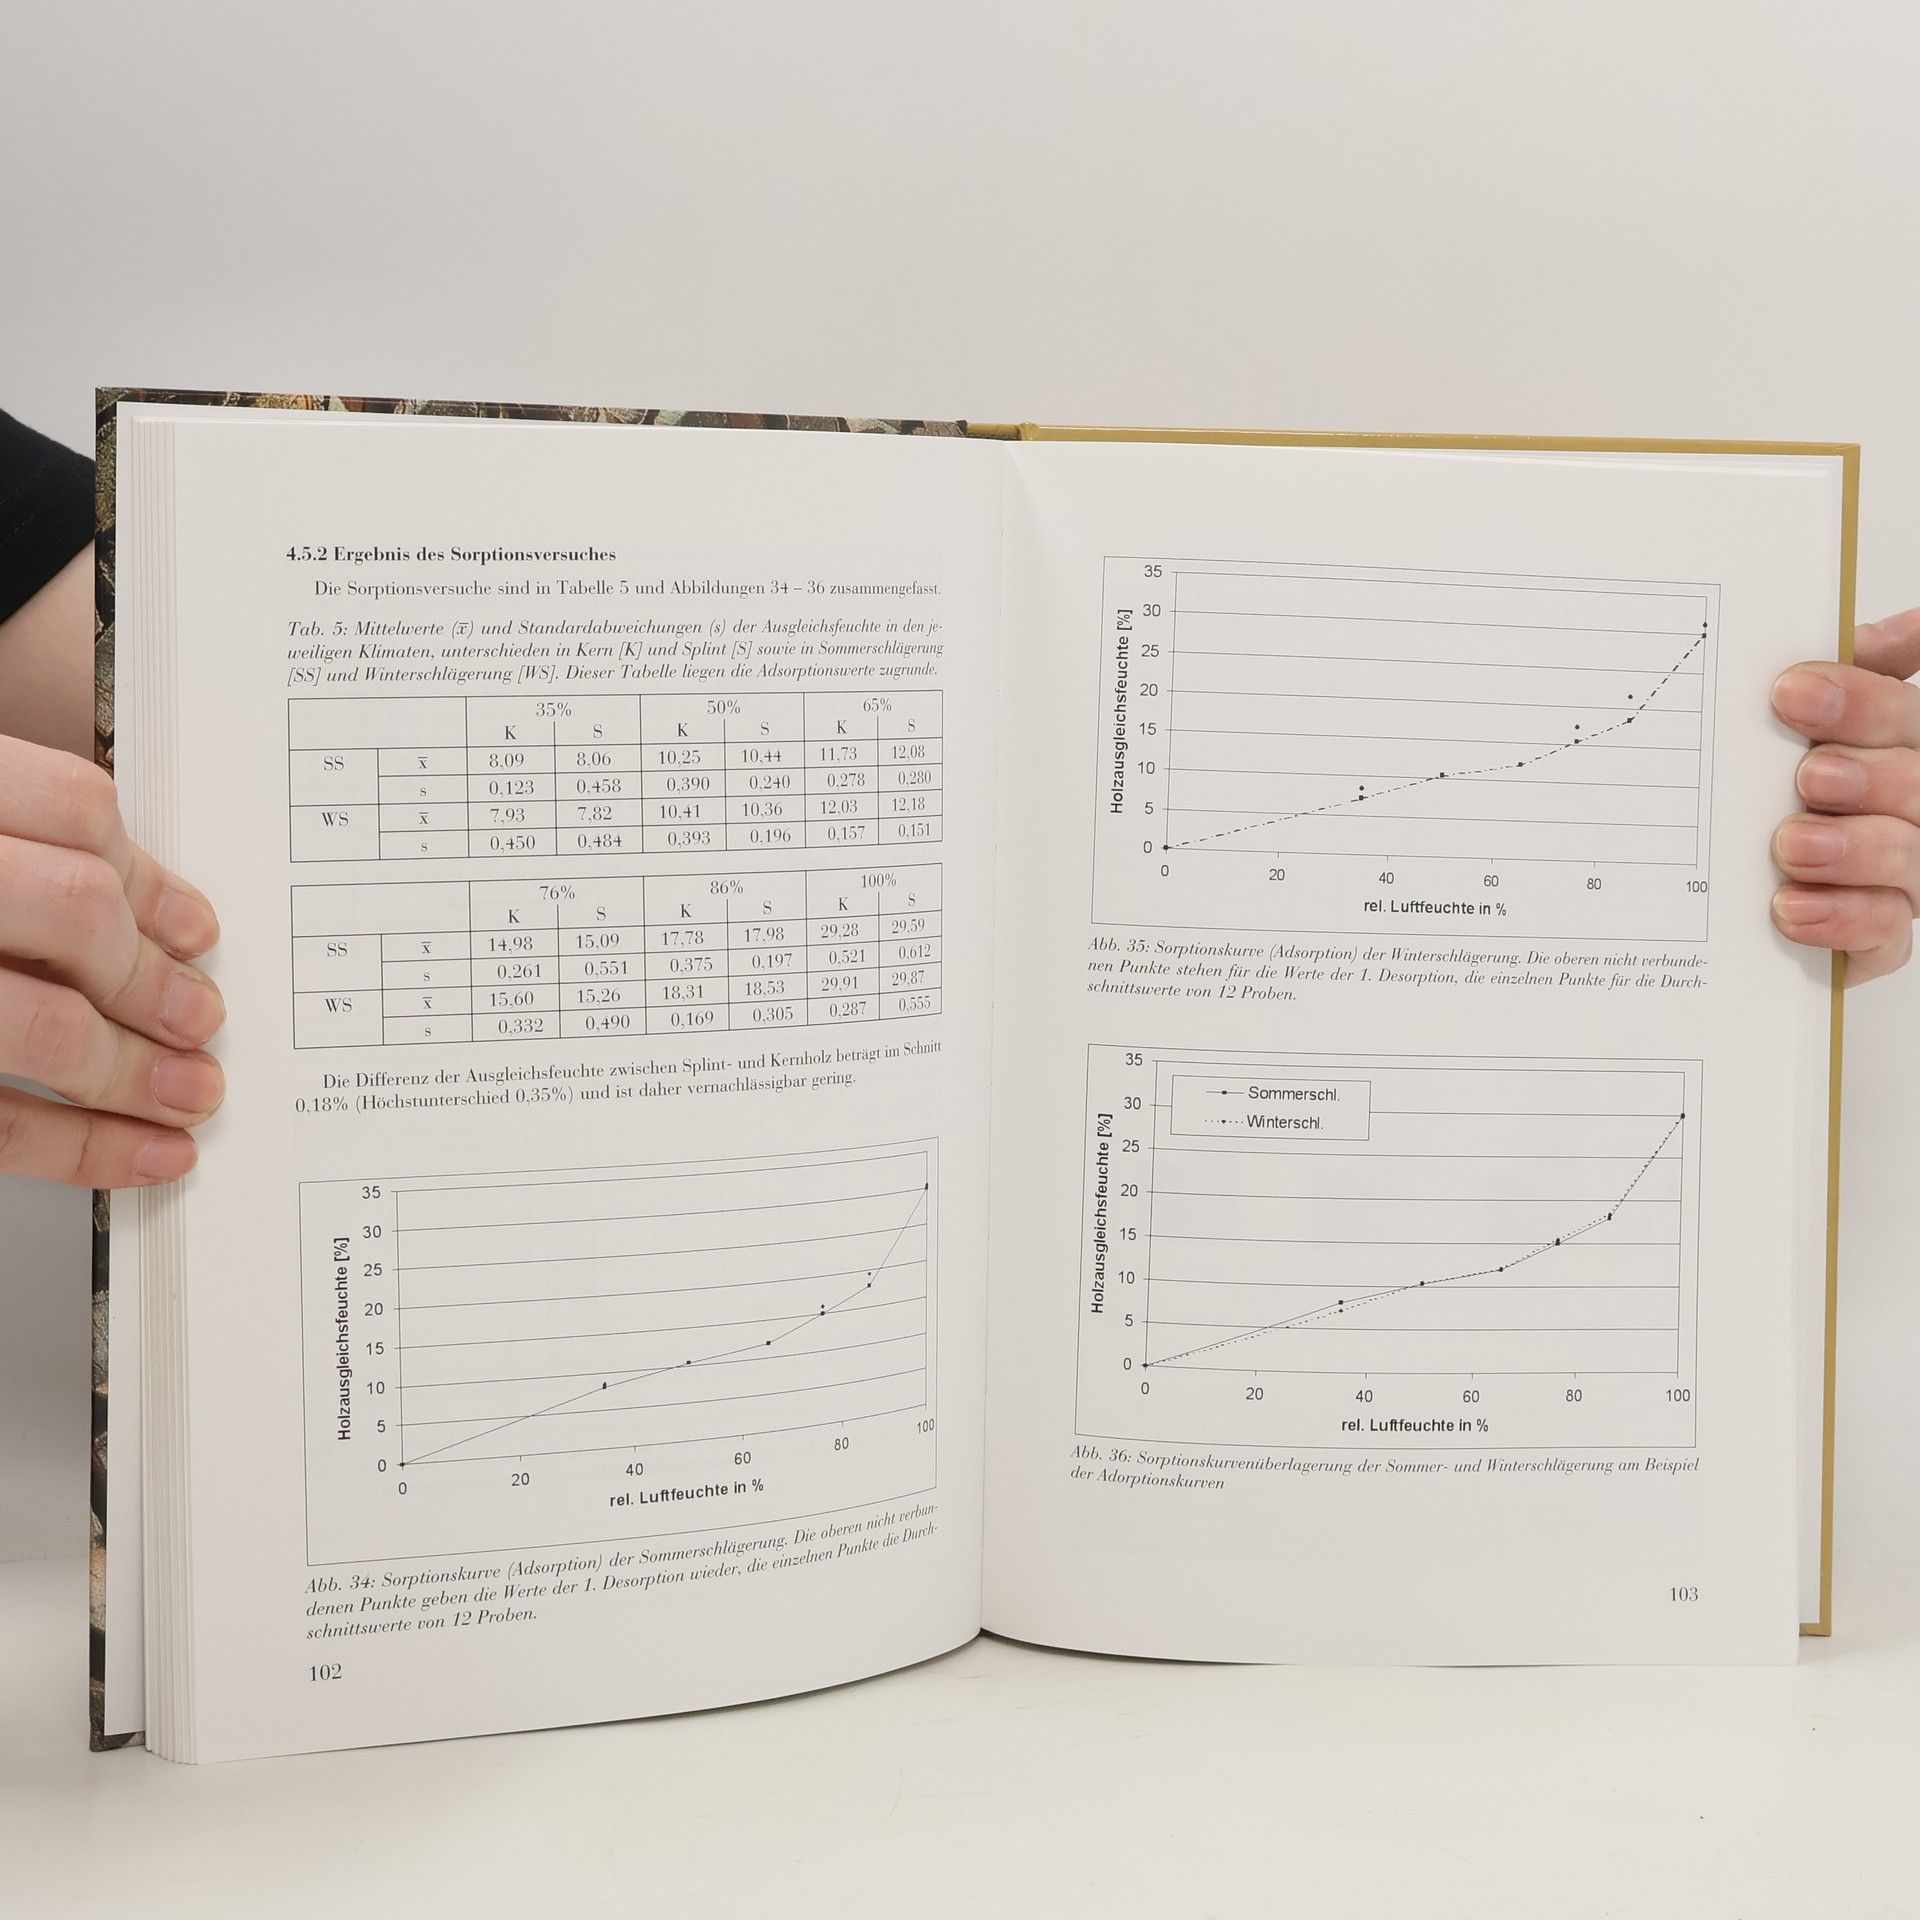 4.5.2 Ergebnis des Sorptionsversuches
Die Sorptionsversuche sind in Tabelle 5 und Abbildungen 34 – 36 zusammengefasst.
Tab. 5: Mittelwerte (x̅) und Standardabweichungen (s) der Ausgleichsfeuchte in den je-
weiligen Klimaten, unterschieden in Kern [K] und Splint [S] sowie in Sommerschlägerung
[SS] und Winterschlägerung [WS]. Dieser Tabelle liegen die Adsorptionswerte zugrunde.
35% 50% 65%
K S K S K S
SS x̅ 8,09 8,06 10,25 10,44 11,73 12,08
s 0,123 0,458 0,390 0,240 0,278 0,280
WS x̅ 7,93 7,82 10,41 10,36 12,03 12,18
s 0,450 0,484 0,393 0,196 0,157 0,151
76% 86% 100%
K S K S K S
SS x̅ 14,98 15,09 17,78 17,98 29,28 29,59
s 0,261 0,551 0,375 0,197 0,521 0,612
WS x̅ 15,60 15,26 18,31 18,53 29,91 29,87
s 0,332 0,490 0,169 0,305 0,287 0,555
Die Differenz der Ausgleichsfeuchte zwischen Splint- und Kernholz beträgt im Schnitt
0,18% (Höchstunterschied 0,35%) und ist daher vernachlässigbar gering.
Holzausgleichsfeuchte [%]
35
30
25
20
15
10
5
0
0 20 40 60 80 100
rel. Luftfeuchte in %
Abb. 34: Sorptionskurve (Adsorption) der Sommerschlägerung. Die oberen nicht verbun-
denen Punkte geben die Werte der 1. Desorption wieder, die einzelnen Punkte die Durch-
schnittswerte von 12 Proben.
102
Holzausgleichsfeuchte [%]
35
30
25
20
15
10
5
0
0 20 40 60 80 100
rel. Luftfeuchte in %
Abb. 35: Sorptionskurve (Adsorption) der Winterschlägerung. Die oberen nicht verbunde-
nen Punkte stehen für die Werte der 1. Desorption, die einzelnen Punkte für die Durch-
schnittswerte von 12 Proben.
Holzausgleichsfeuchte [%]
35
30
25
20
15
10
5
0
Sommerschl.
Winterschl.
0 20 40 60 80 100
rel. Luftfeuchte in %
Abb. 36: Sorptionskurvenüberlagerung der Sommer- und Winterschlägerung am Beispiel
der Adorptionskurven
103